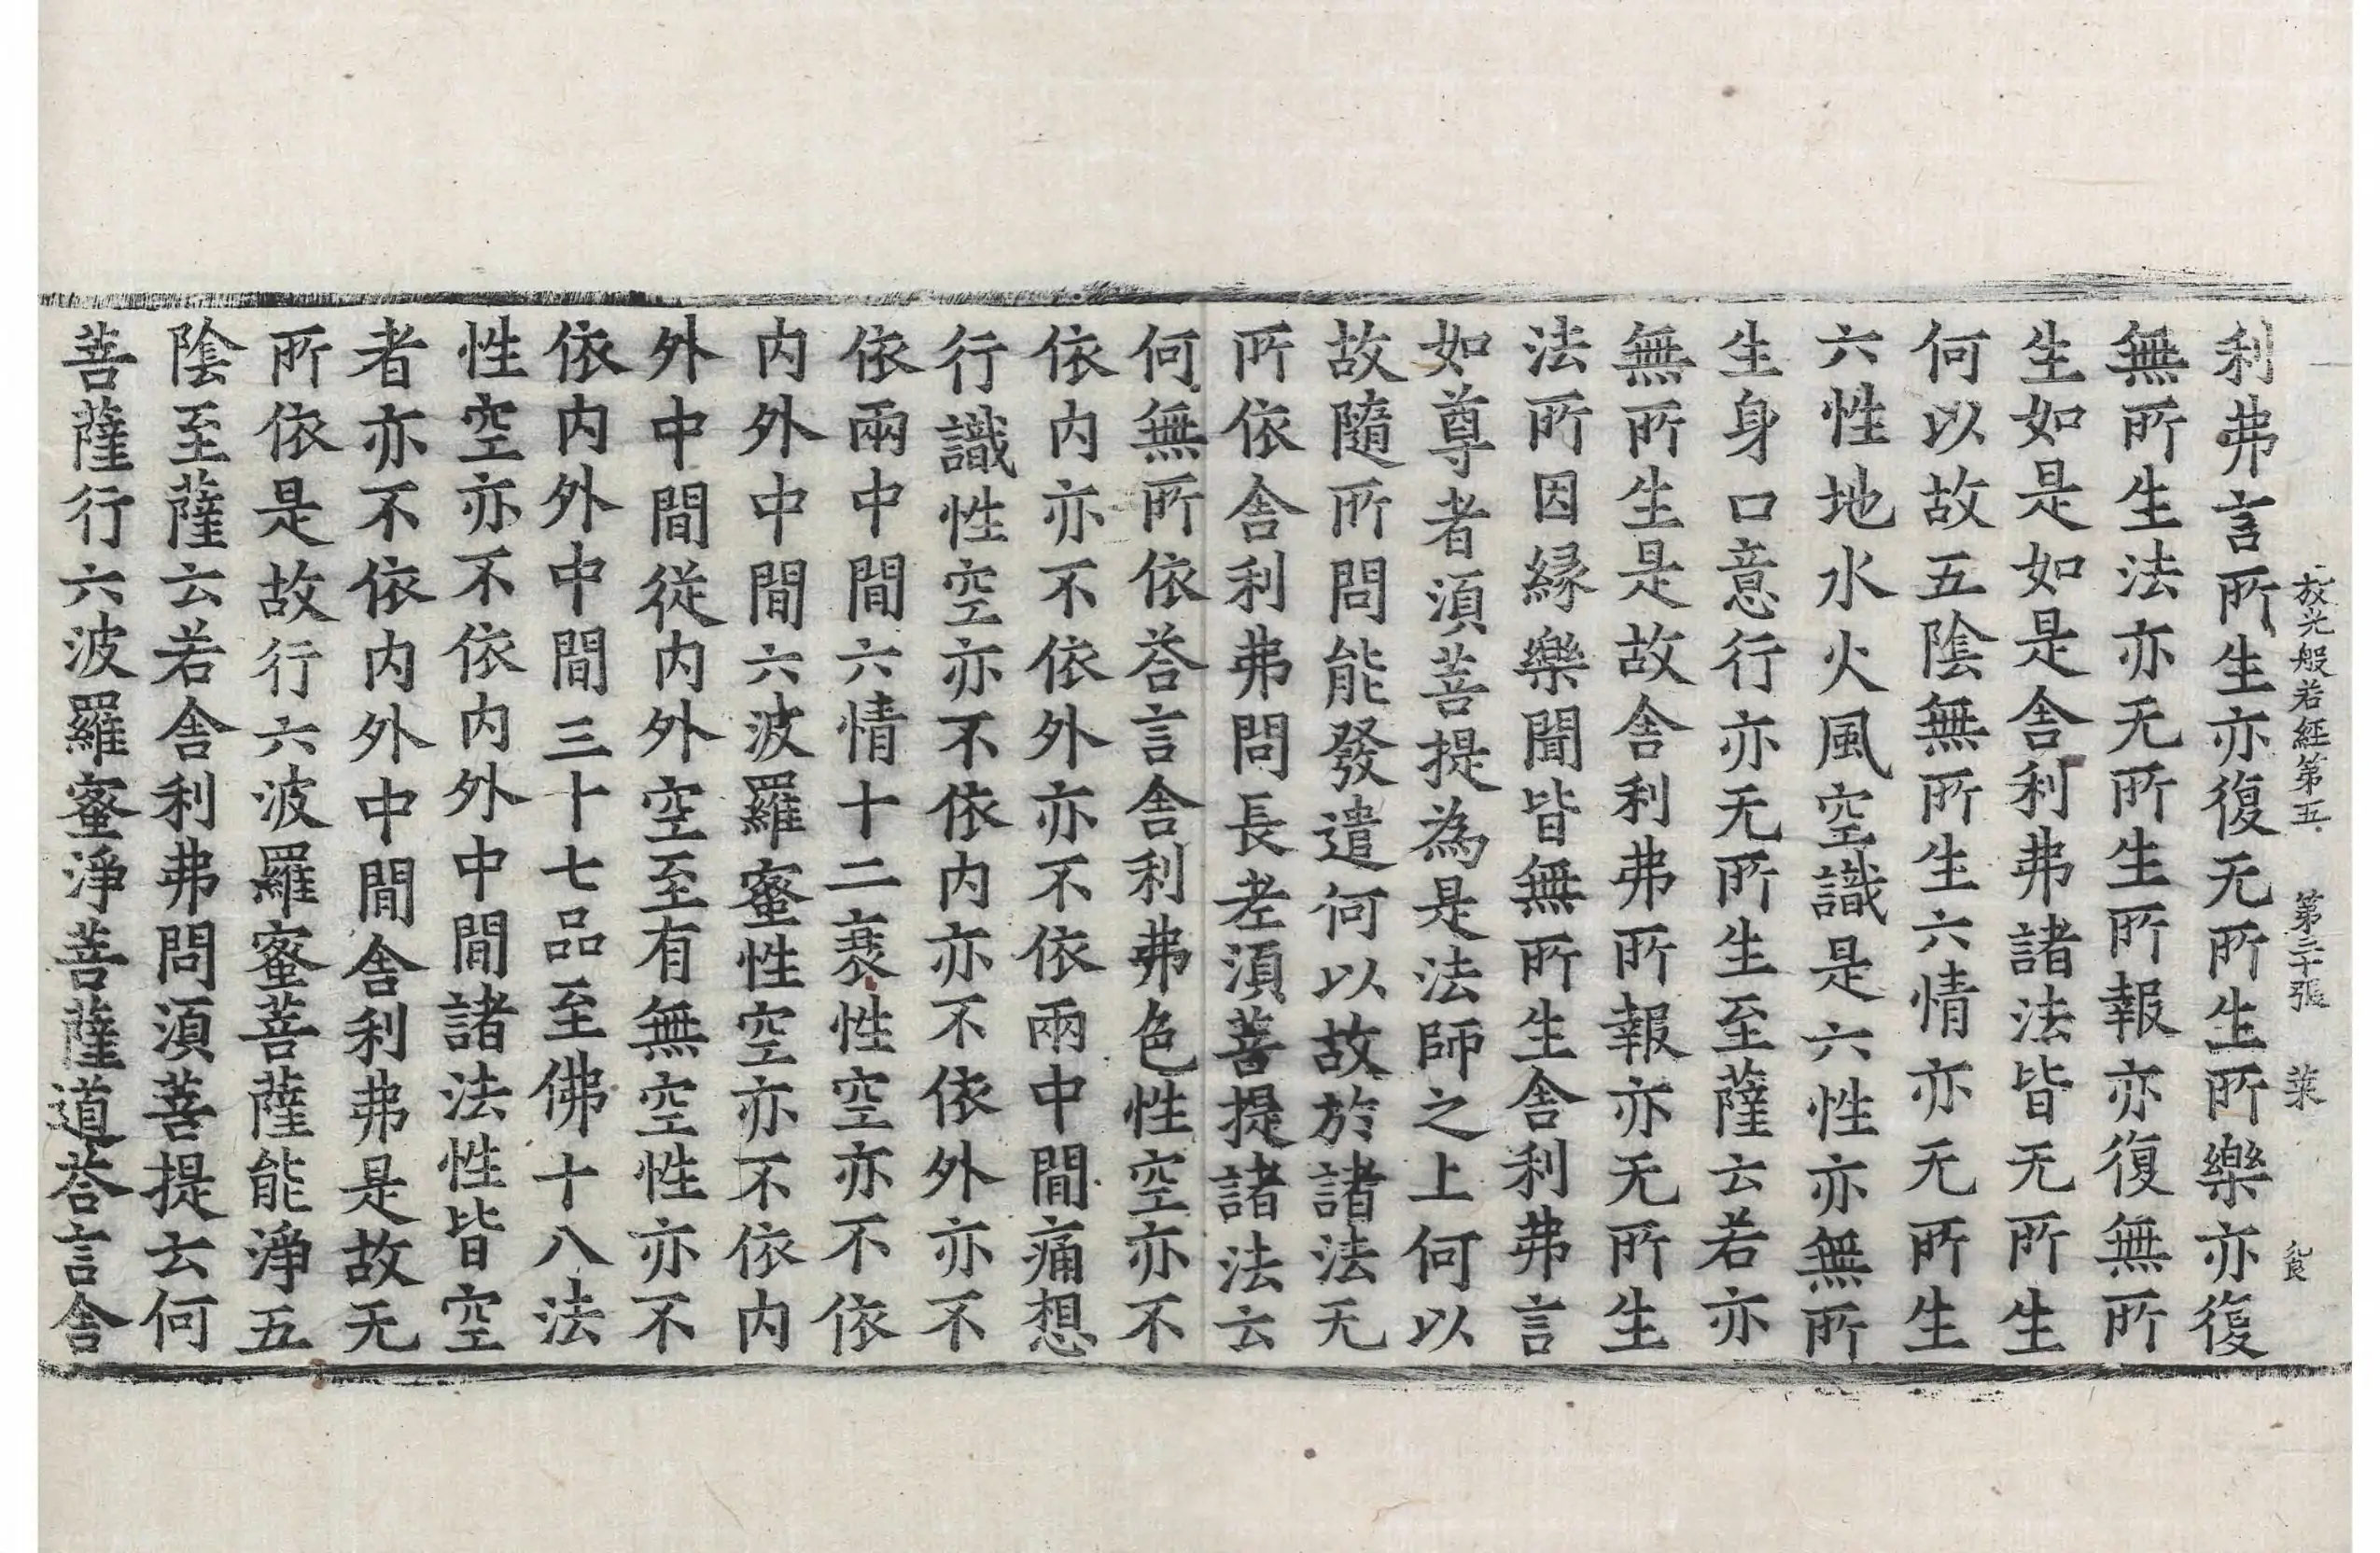 放光般若經第五 第三十張 菜
利弗言所生亦復无所生所樂亦復
無所生法亦无所生所報亦復無所
生如是如是舎利弗諸法皆无所生
何以故五陰無所生六情亦无所生
六性地水火風空識是六性亦無所
生身口意行亦无所生至薩云若亦
無所生是故舎利弗所報亦无所生
法所因縁樂聞皆無所生舎利弗言
如尊者湏菩提為是法師之上何以
故隨所問能發遣何以故於諸法无
所依舎利弗問長老湏菩提諸法云
何無所依荅言舎利弗色性空亦不
依内亦不依外亦不依兩中間痛想
行識性空亦不依内亦不依外亦不
依兩中間六情十二衰性空亦不依
内外中間六波羅蜜性空亦不依内
外中間從内外空至有無空性亦不
依内外中間三十七品至佛十八法
性空亦不依内外中間諸法性皆空
者亦不依内外中間舎利弗是故无
所依是故行六波羅蜜菩薩能淨五
陰至薩云若舎利弗問湏菩提云何
菩薩行六波羅蜜淨菩薩道荅言舎